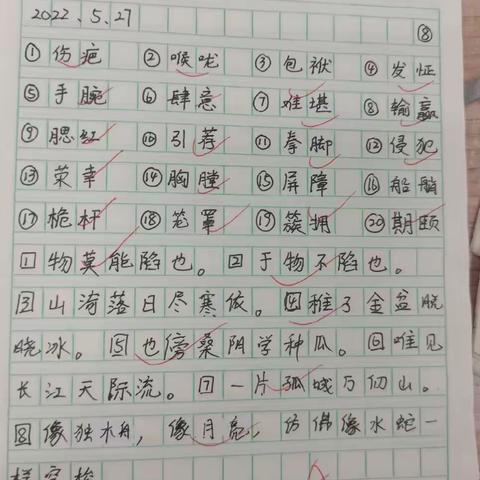 2022.5.27
⑧
①伤疤 ②喉咙 ③包袱 ④发怔
⑤手腕 ⑥肆意 ⑦难堪 ⑧输赢
⑨腮红 ⑩引荐 ⑪拳脚 ⑫侵犯
⑬荣幸 ⑭胸膛 ⑮屏障 ⑯船艄
⑰桅杆 ⑱笼罩 ⑲簇拥 ⑳期颐
1物莫能陷也。2于物不陷也。
3山漪落日尽寒依。4稚子金盆脱
晓冰。5也傍桑阴学种瓜。6唯见
长江天际流。7一片孤城万仞山。
8像独木舟，像月亮，仿佛像水蛇一